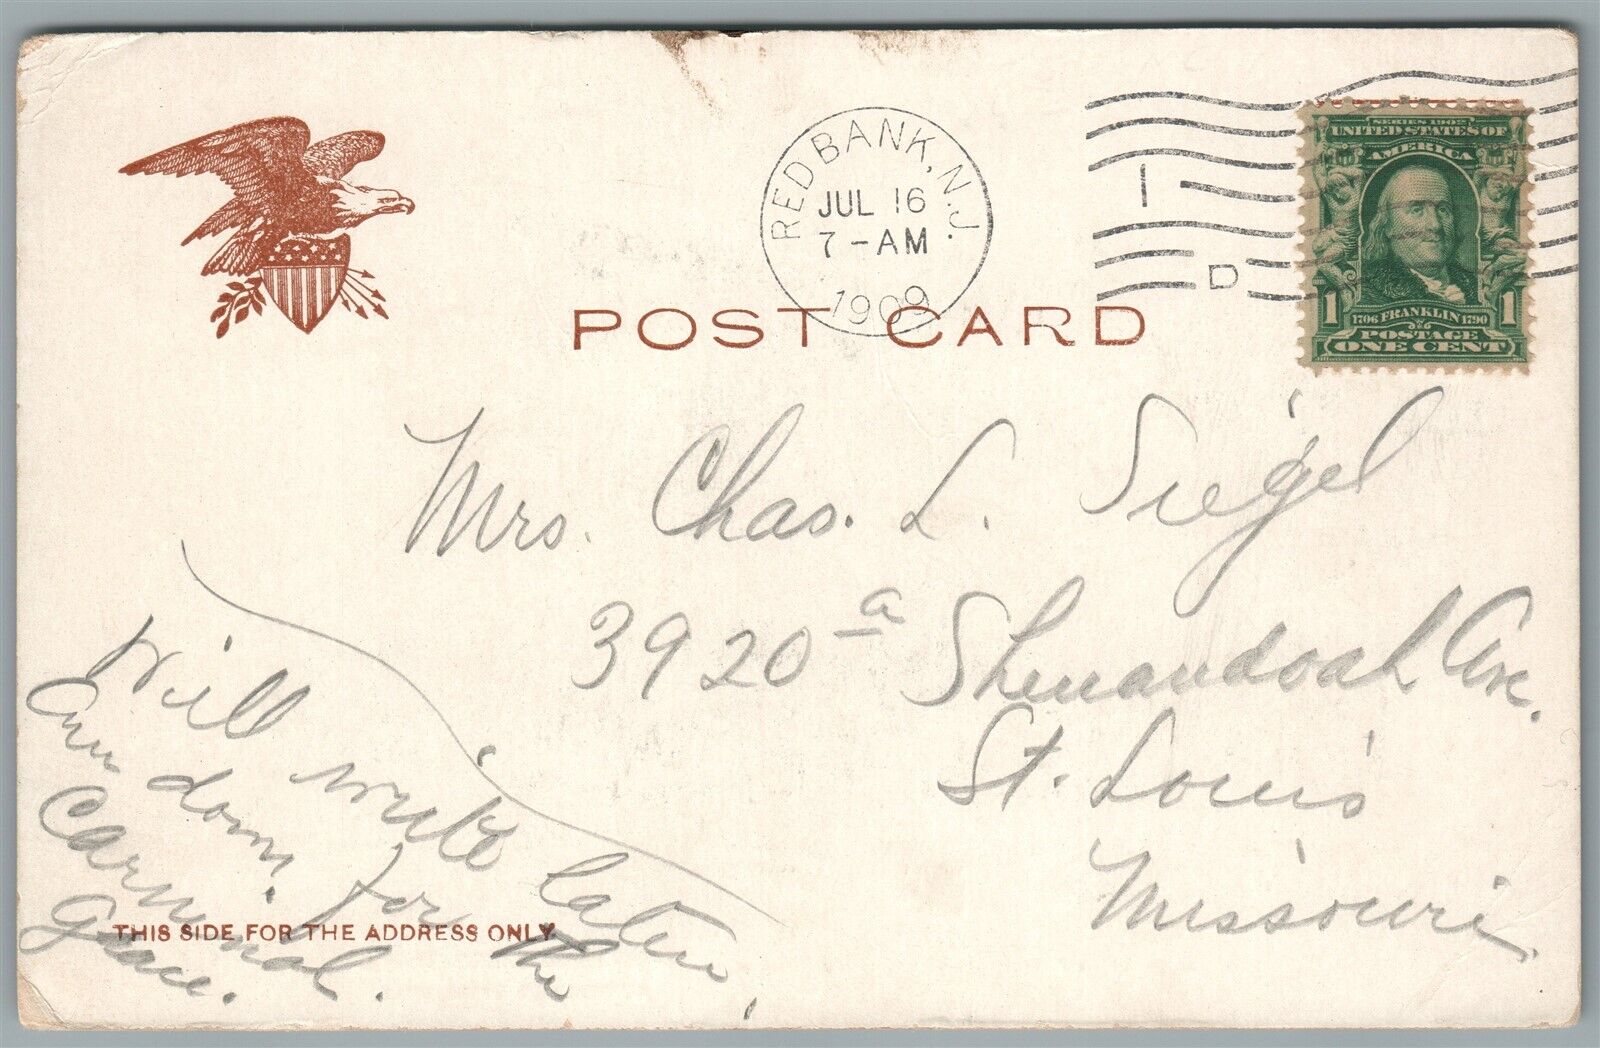 RED BANK, N.J.
JUL 16
7-AM
1909
1
D
SERIES 1902
UNITED STATES OF
AMERICA
1706 FRANKLIN 1790
1 POSTAGE 1
ONE CENT
POST CARD
Mrs. Chas. L. Siegel
3920 a Shenandoah Ave.
St. Louis
Missouri
Will write later,
Am down for the
Carnival.
Grace.
THIS SIDE FOR THE ADDRESS ONLY.